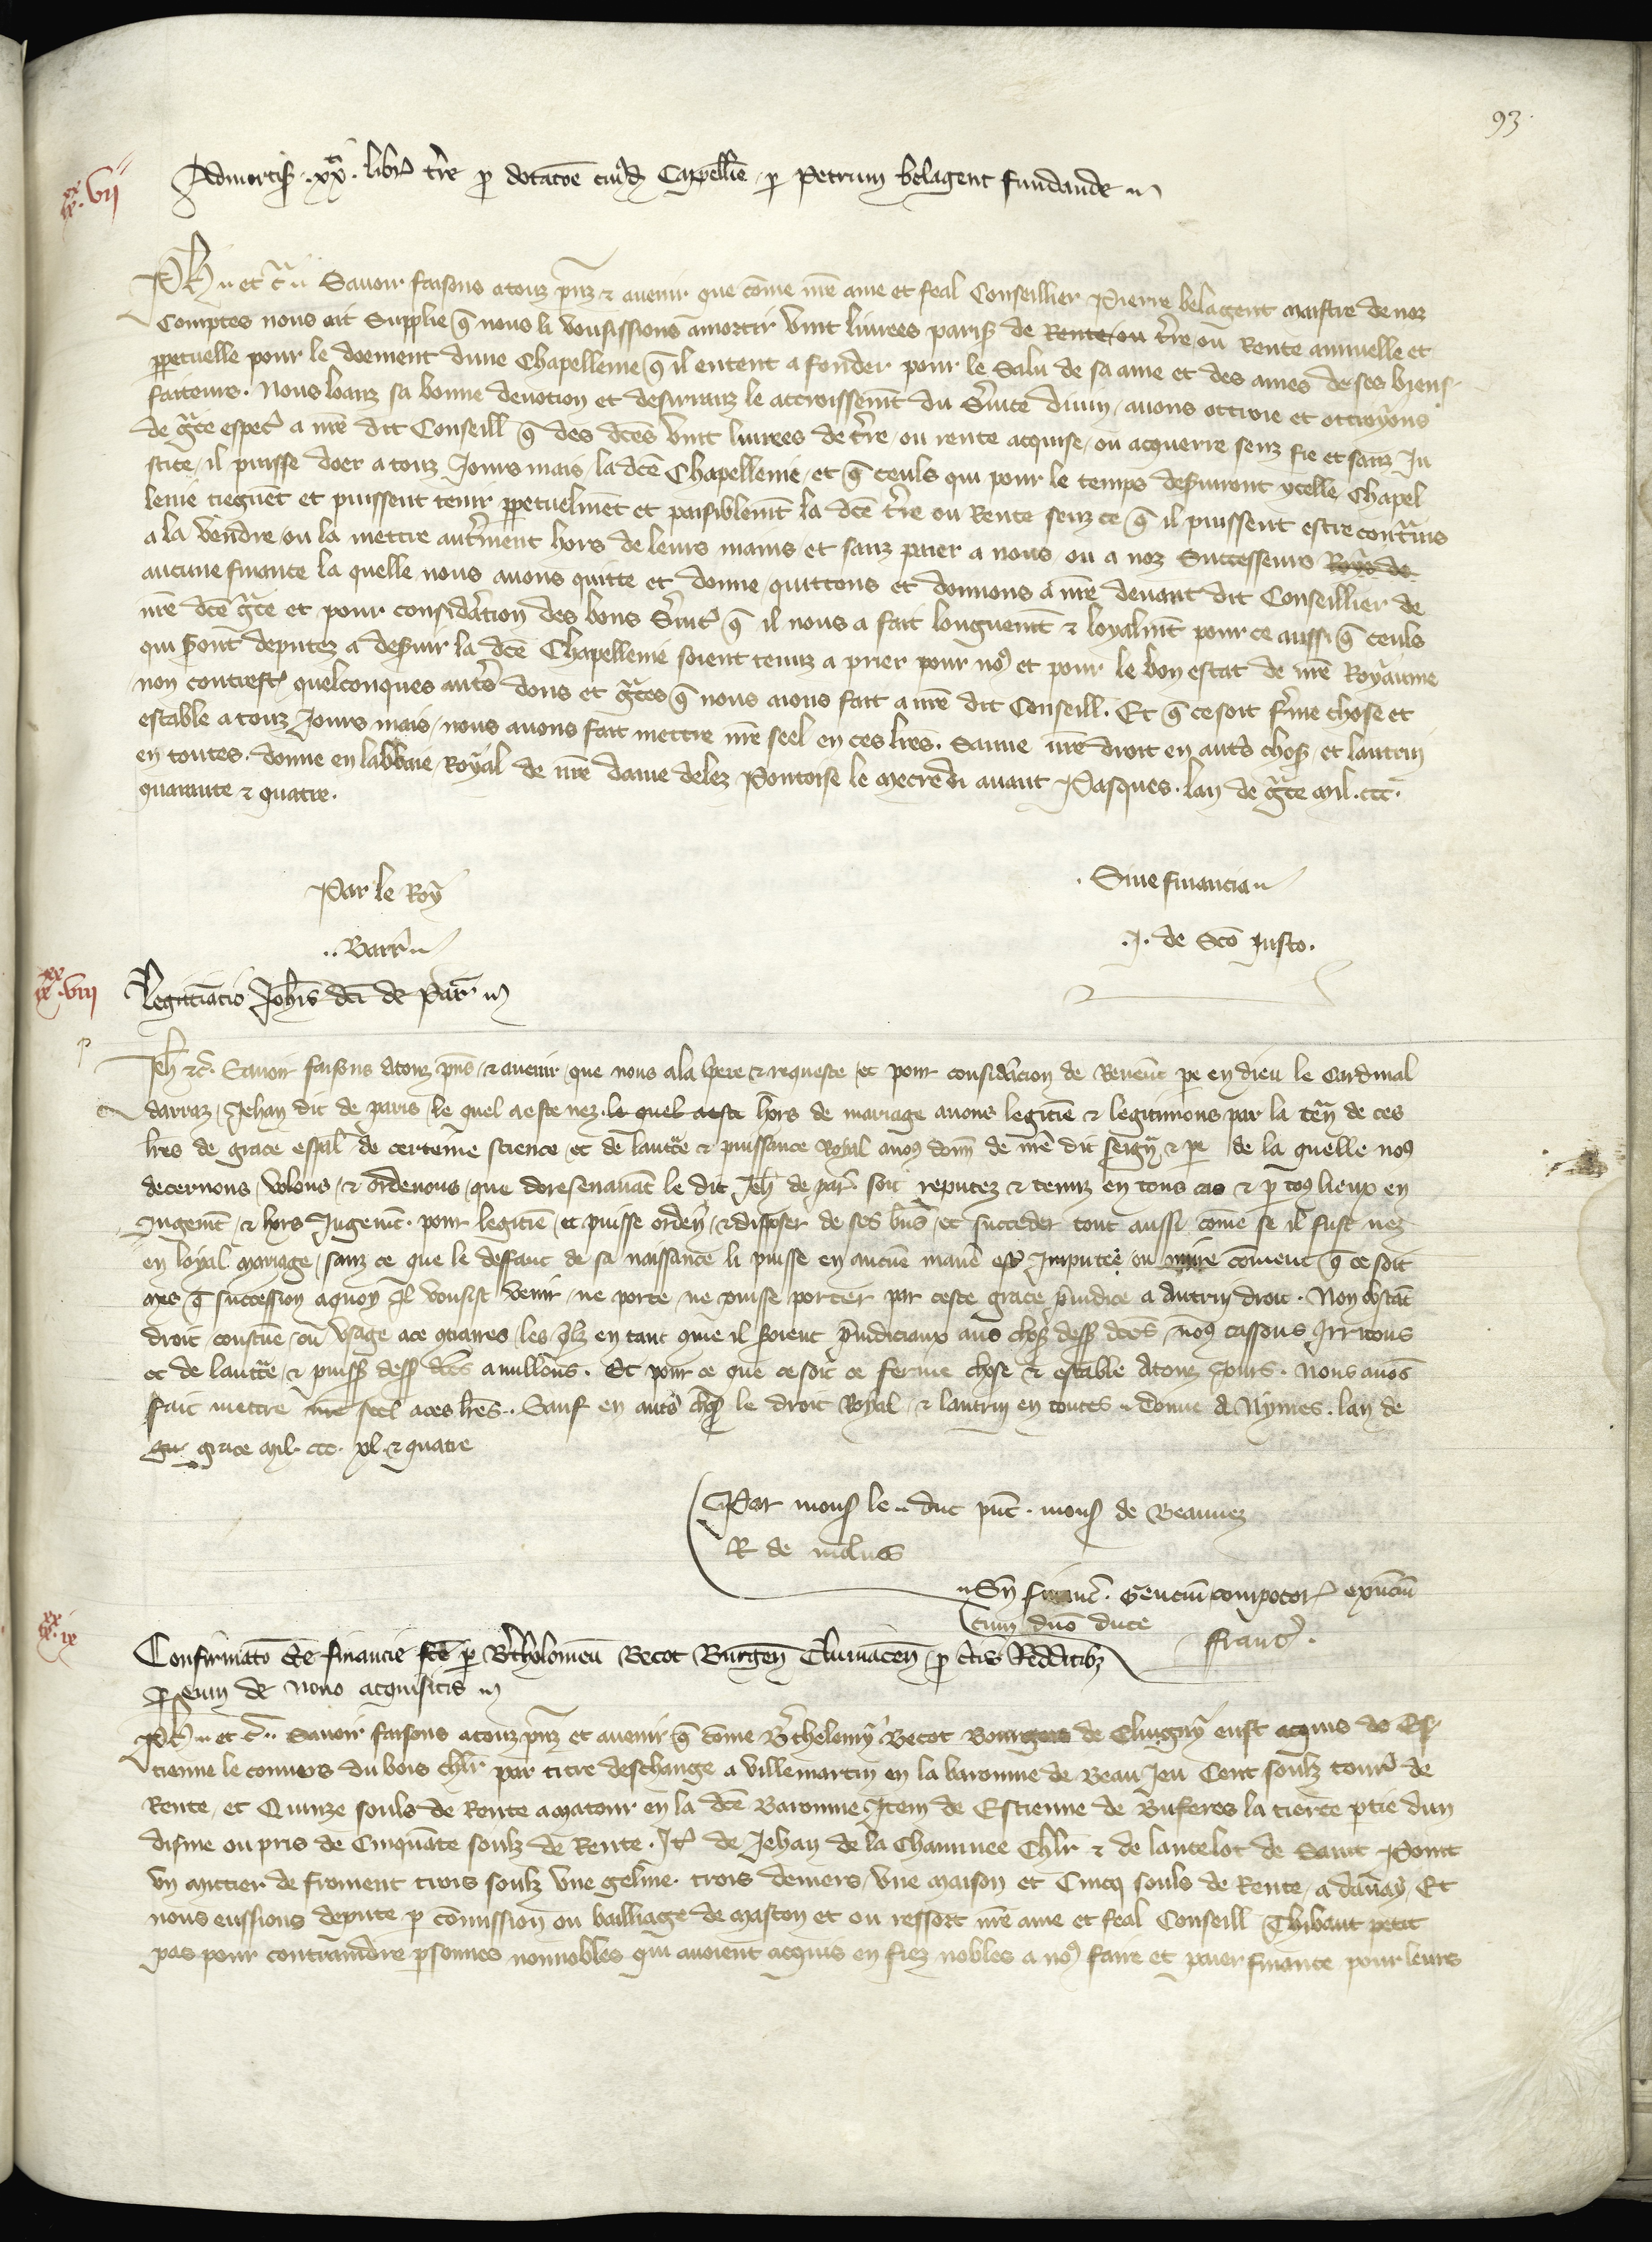 93.
ix^xx. vii
Admortiss̃. xx^ti. libr̃ t̃re p̱ dotac̃oe cuiusd̃ Cappelli̇e p̱ Petrum belagent fundande
Ph̃ et c̃ Savoir faisons a touz p̃nz & avenir que com̃e nr̃e ame et feal Conseillier Pierre belagent maistre de noz
Comptes nous ait Supplie q̃ nous li vousissions amortir vint livrees pariss̃ de Rente ou t̃re ou Rente annuelle et
p̱petuelle pour le doement dune Chapellenie q̃ il entent a fonder pour le Salu de sa ame et des ames de ses bienf
faiteurs. Nous loanz sa bonne devotion et desirranz le accroissem̃t du s̃vice divin avons ottroie et ottroyons
de gr̃ce espec̃ a nr̃e dit Conseill̃ q̃ des dc̃es vint livrees de t̃re ou rente acquise ou acquerre senz fie et sanz Ju
stice il puisse doer a touz Jours mais la dc̃e Chapellenie et q̃ ceuls qui pour le temps des̃viront ycelle Chapel
lenie tiegnẽt et puissent tenir p̱petuelmẽt et paisiblem̃t la dc̃e t̃re ou Rente senz ce q̃ il puissent estre contr̃ins
a la vendre ou la mettre aut̃ment hors de leurs mains et sanz paier a nous ou a noz Successeurs Roys de
aucune finance la quelle nous avons quitte et donne quittons et donnons a nr̃e devant dit Conseillier de
nr̃e dc̃e gr̃ce et pour consid̃ation des bons s̃vic̃ q̃ il nous a fait longuem̃t & loyalm̃t pour ce aussi q̃ ceuls
qui s̃ont deputez a des̃vir la dc̃e Chapellenie soient tenuz a prier pour no9 et pour le bon estat de nr̃e Royaume
non contrest̃ quelconques aut̃s dons et gr̃ces q̃ nous aions fait a nr̃e dit Conseill̃. Et q̃ ce soit f̃me chose et
estable a touz Jours mais nous avons fait mettre nr̃e seel en ces lr̃es. Sauve nr̃e droit en aut̃s chos̃ et lautrui
en toutes. donne en labbaie Royal de nr̃e dame delez Pontoise le mecredi avant Pasques. lan de gr̃ce mil. ccc.
quarante & quatre.
Par le Roy
Sine financia
.. Barr̃
.J. de Sc̃o Justo.
ix^xx. viii
Legitimac̃io Joh̃is dc̃i de Par̃
Jeh̃ &c̃. Savoir faisons a touz p̃ns & avenir que nous a la p̱ere & requeste et pour consid̃acion de Reverẽt pe en dieu le Cardinal
darraz, Jehan dit de paris le quel a este nez le quel a este hors de mariage avons legitime & legitimons par la ten̄ de ces
lr̃es de grace esp̃al de certeinne science et de lauct̃e & puissance Royal a no9 donñ de nr̃e dit seign̄ & pe de la quelle no9
decernons, volons & ordenons que doresenavant le dit Jeh̃ de par̃ soit reputez & tenuz en tous cas & p̱ to9 lieux en
Jugem̃t & hors Jugem̃t pour legitim̃e et puisse orden̄ & disposer de ses biẽs et succeder tout aussi com̃e se il fust nez
en loyal mariage sanz ce que le deffaut de sa naissance li puisse en aucũe maniẽ est̃ Jmputee ou nuire com̃ent q̃ ce soit
mes q̃ succession a quoy Jl vousist venir ne porte ne puisse porter par ceste grace p̃iudice a Autrui droit. Non obstãt
droit coustũe ou usage a ce 9traires les q̃lz en tant q̃me il s̃oient p̃iudiciaux aus chos̃ dess̃ dc̃es no9 cassons Jrritons
et de lauct̃e & puiss̃ dess̃ dc̃es anullons. Et pour ce que ce soit ce ferme chose & estable a touz Jours. Nous avõs
fait mettre nr̃e seel a ces lr̃es. Sauf en aut̃s chos̃ le droit Royal & lautrui en toutes donne A Nymes. lan de
gr̃ grace mil. ccc. xl. & quatre
Par mons̃ le duc p̃nt. mons̃ de Beauvez
R de molins
Sn̄ financ̃. Gencium compotor̃ expediũ
cum dno duce
Franc̃.
ix^xx. ix
Confirmatõ &c̃ financie fc̃e p̱ B̃tholomeũ Becot Burgeñ Cluniaceñ p̱ c̃tis Redditib9
p̱ eum de novo acquisitis
Ph̃ et c̃. Savoir faisons a touz p̃nz et avenir q̃ com̃e B̃thelemy Becot Bourgois de Clugny eust acquis de Es
tienne le convers du bois chl̃r par titre deschange a villemartin en la baronnie de Beau Jeu Cent soulz tour̃ de
Rente, et Quinze souls de Rente a matour en la dc̃e Baronnie Jtem de Estienne de Buferes la tierce p̱tie dun
disme ou pris de Cinquãte soulz de Rente. Jt̃ de Jehan de la Chaminee Chl̃r & de lancelot de Saint Point
un mittier de froment trois soulz une geline trois deniers, une maison et Cinq souls de Rente a davaỹ Et
nous eussions depute p̱ com̃ission ou bailliage de mascon et ou ressort nr̃e ame et feal Conseill̃ Thibaut petit
pas pour contraindre p̱sonnes nonnobles qui avoient acquis en fiez nobles a no9 faire et paier finance pour leurs